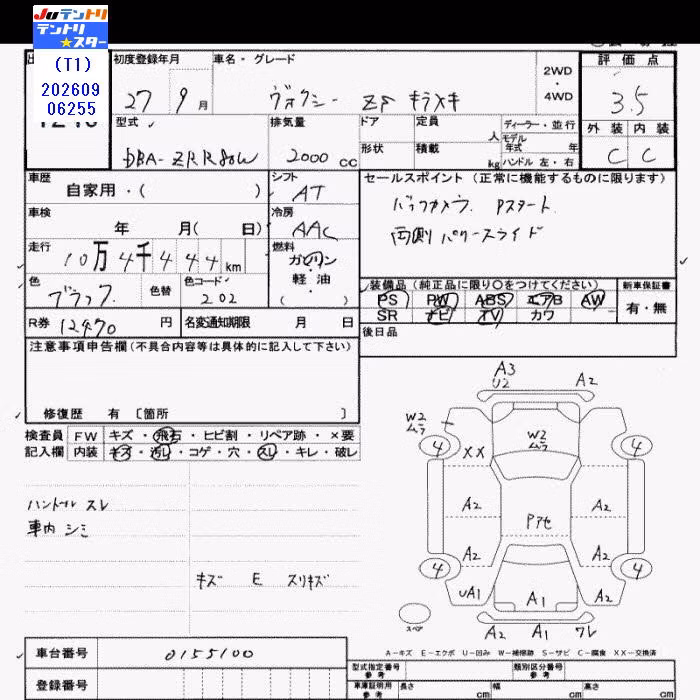 JUテントリ
テントリ
★スター
(T1)
202609
06255
初度登録年月
27 9月
車名・グレード
ヴォクシー ZS キラメキ
2WD
・
4WD
評価点
3.5
型式
DBA-ZRR80W
排気量
2000 cc
ドア
定員
人
ディーラー・並行
モデル
年式 年
形状
積載
kg
ハンドル 左・右
外装 内装
C C
車歴
自家用・( )
シフト
AT
セールスポイント(正常に機能するものに限ります)
バックカメラ. Pスタート.
両側パワースライド
車検
年 月( 日)
冷房
AAC
走行
10万4千444km
燃料
ガソリン
・
軽油
( )
色
ブラック
色替
色コード
202
装備品(純正品に限り○をつけてください)
新車保証書
PS PW ABS エアB AW
SR ナビ TV カワ
有・無
R券 12470円
名変通知期限 月 日
後日品
注意事項申告欄(不具合内容等は具体的に記入して下さい)
修復歴 有 〔箇所 〕
検査員
記入欄
FW キズ・飛石・ヒビ割・リペア跡・×要
内装 キズ・汚レ・コゲ・穴・スレ・キレ・破レ
ハンドル スレ
車内 シミ
キズ E スリキズ
A3
U2
A2
W2
ムラ
4
XX
W2
ムラ
4
A2
Pアセ
A2
A2
A2
4
4
UA1
A1
A2
スペア
A2 A1 ワレ
A-キズ E-エクボ U-凹み W-補修跡 S-サビ C-腐食 XX-交換済
車台番号
0155100
登録番号
型式指定番号
参考
類別区分番号
参考
車庫証明用
参考
長さ cm
幅 cm
高さ cm